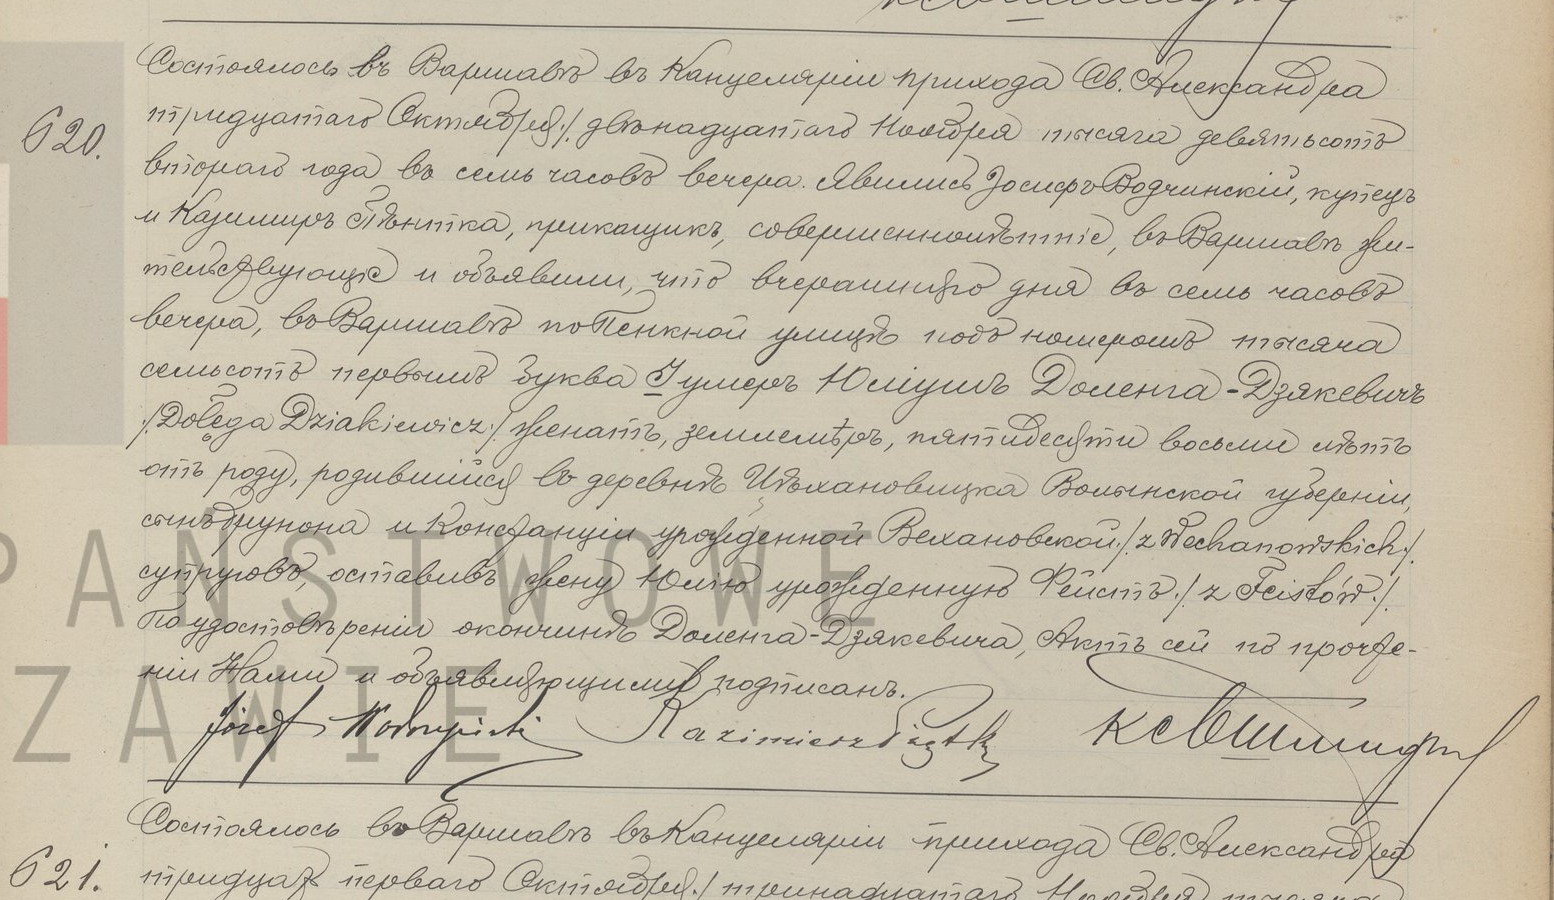 Состоялось въ Варшавѣ въ Канцеляріи прихода Св. Александра
620.
тридцатаго Октября /. двѣнадцатаго Ноября тысяча девятьсотъ
второго года въ семь часовъ вечера. Явились Іосифъ Водчинскій, купецъ
и Казимиръ Піентка, прикащикъ, совершеннолѣтніе, въ Варшавѣ жи-
тельствующіе и объявили, что вчерашняго дня въ семь часовъ
вечера, въ Варшавѣ по Пенкной улицѣ подъ номеромъ тысяча
семьсотъ первымъ буква J умеръ Юліушъ Доленга-Дзякевичъ
/. Dołęga Dziakiewicz ./ женатъ, землемѣръ, пятидесяти восьми лѣтъ
отъ роду, родившійся въ деревнѣ Волынской губерніи,
сынъ Брунона и Констанціи урожденной Вехановской ./ z Wechanowskich ./
супруговъ, оставивъ жену Юлію урожденную Фейстъ ./ z Feistów ./.
По удостовѣреніи о кончинѣ Доленга-Дзякевича, Актъ сей по прочте-
ніи Нами и объявляющими подписанъ.
Józef Kazimierz Piętka
PAŃSTWOWE
ZAWIE
Состоялось въ Варшавѣ въ Канцеляріи прихода Св. Александра
621.
тридцать перваго Октября ./ тринадцатаго Ноября тысяча